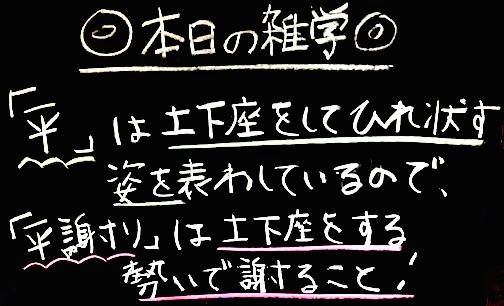 ◎本日の雑学◎
「平」は土下座をしてひれ伏す
姿を表わしているので、
「平謝り」は土下座をする
勢いで謝すること!